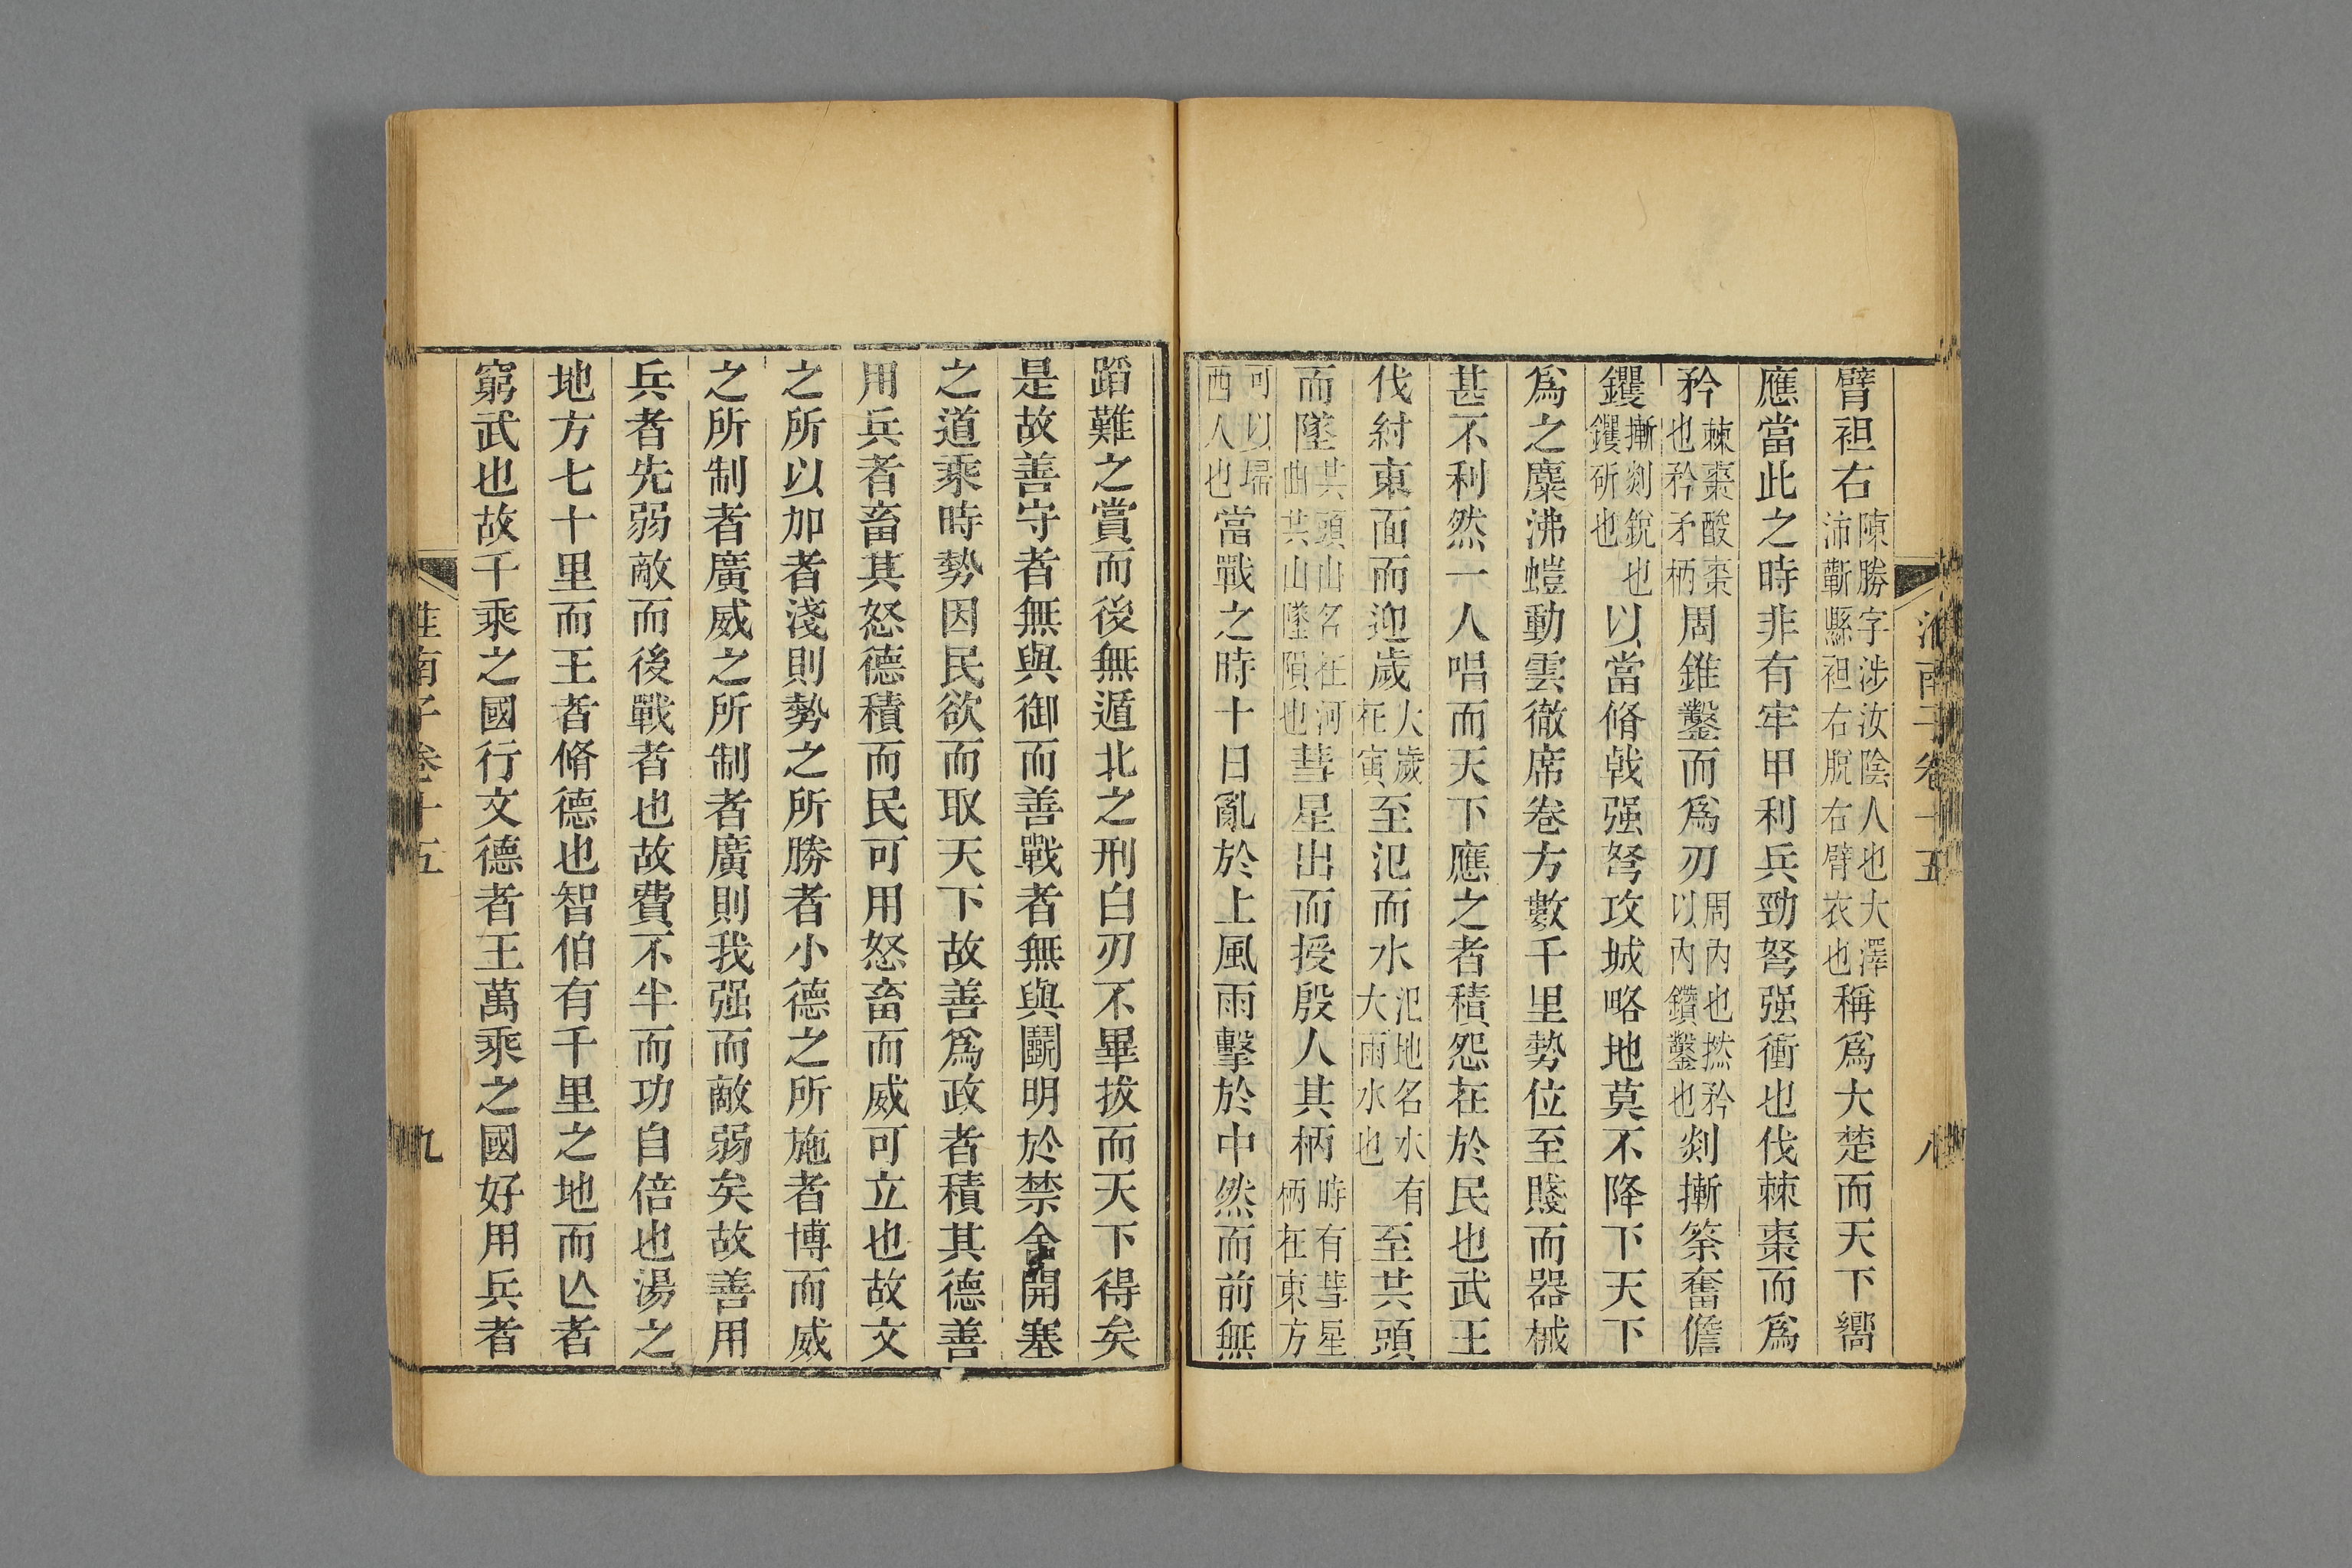 淮南子卷十五
八
臂袒右陳勝字涉汝陰人也大澤沛蘄縣袒右脫右臂衣也稱爲大楚而天下嚮
應當此之時非有牢甲利兵勁弩强衝也伐棘棗而爲
矜棘棗酸棗也矜矛柄周錐鑿而爲刃周內也撚矜以內鑽鑿也剡摲筡奮儋
钁摲剡銳也钁斫也以當脩戟强弩攻城略地莫不降下天下
爲之麋沸螘動雲徹席卷方數千里勢位至賤而器械
甚不利然一人唱而天下應之者積怨在於民也武王
伐紂東面而迎歲大歲在寅至汜而水汜地名水有大雨水也至共頭
而墜共頭山名在河曲共山墜隕也彗星出而授殷人其柄時有彗星柄在東方
可以埽西人也當戰之時十日亂於上風雨擊於中然而前無
蹈難之賞而後無遁北之刑白刃不畢拔而天下得矣
是故善守者無與御而善戰者無與鬭明於禁舍開塞
之道乘時勢因民欲而取天下故善爲政者積其德善
用兵者畜其怒德積而民可用怒畜而威可立也故文
之所以加者淺則勢之所勝者小德之所施者博而威
之所制者廣威之所制者廣則我强而敵弱矣故善用
兵者先弱敵而後戰者也故費不半而功自倍也湯之
地方七十里而王者脩德也智伯有千里之地而亾者
窮武也故千乘之國行文德者王萬乘之國好用兵者
淮南子卷十五
九